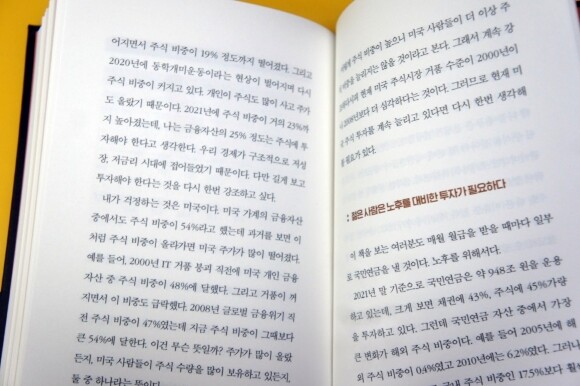 어지면서 주식 비중이 19% 정도까지 떨어졌다. 그리고
2020년에 동학개미운동이라는 현상이 벌어지며 다시
주식 비중이 커지고 있다. 개인이 주식도 많이 사고 주가
도 올랐기 때문이다. 2021년에 주식 비중이 거의 23%까
지 높아졌는데, 나는 금융자산의 25% 정도는 주식에 투
자해야 한다고 생각한다. 우리 경제가 구조적으로 저성
장, 저금리 시대에 접어들었기 때문이다. 다만 길게 보고
투자해야 한다는 것을 다시 한번 강조하고 싶다.
내가 걱정하는 것은 미국이다. 미국 가계의 금융자산
중에서도 주식 비중이 54%라고 했는데 과거를 보면 이
처럼 주식 비중이 올라가면 미국 주가가 많이 떨어졌다.
예를 들어, 2000년 IT 거품 붕괴 직전에 미국 개인 금융
자산 중 주식 비중이 48%에 달했다. 그리고 거품이 꺼
지면서 이 비중도 급락했다. 2008년 글로벌 금융위기 직
전 주식 비중이 47%였는데 지금 주식 비중이 그때보다
큰 54%에 달한다. 이건 무슨 뜻일까? 주가가 많이 올랐
든지, 미국 사람들이 주식 수량을 많이 보유하고 있든지,
둘 중 하나라는 뜻이다.
주식 비중이 높으니 미국 사람들이 더 이상 주
늘리지는 않을 것이라고 본다. 그래서 계속 강
현재 미국 주식시장 거품 수준이 2000년이
2008년보다 더 심각하다는 것이다. 그러므로 현재 미
주식 투자를 계속 늘리고 있다면 다시 한번 생각해
필요가 있다.
: 젊은 사람은 노후를 대비한 투자가 필요하다
이 책을 보는 여러분도 매월 월급을 받을 때마다 일부
로 국민연금을 낼 것이다. 노후를 위해서다.
2021년 말 기준으로 국민연금은 약 948조 원을 운용
하고 있는데, 크게 보면 채권에 43%, 주식에 45%가량
을 투자하고 있다. 그런데 국민연금 자산 중에서 가장
큰 변화가 해외 주식이다. 예를 들어 2005년에 해
외 주식 비중이 0.4%였고 2010년에는 6.2%였다. 그러나
주식 비중인 17.5%보다 훨